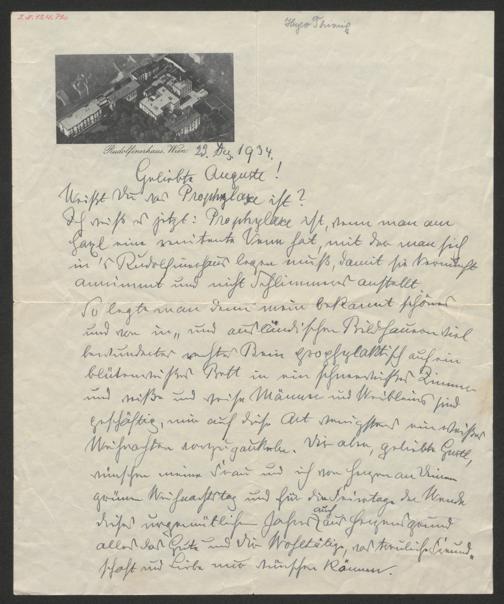 Hugo Thimig
Rudolfinerhaus, Wien 22. Dez. 1934.
Geliebte Auguste!
Weißt Du was Prophylaxe ist?
Ich weiß es jetzt: Prophylaxe ist, wenn man am
Haxl eine renitente Vene hat, mit der man sich
in's Rudolfinerhaus legen muß, damit sie Vernunft
annimmt und nicht Schlimmeres anstellt.
So legte man denn mein bekannt schönes
und von in- und ausländischen Bildhauern viel
bewundertes rechtes Bein prophylaktisch auf ein
blütenweißes Bett in ein schneeweißes Zimmer
und weiße und weise Männer und Weiblein sind
geschäftig, mir auf diese Art wenigstens ein weißes
Weihnachten vorzugaukeln. Dir aber, geliebte Gustl,
wünschen meine Frau und ich von Herzen an Deinen
grünen Weihnachtstag und für die Feiertage der Wende
dieses urgemütlichen Jahres auch aus Herzensgrund
alles das Gute und Dir Wohltätige, was treuliche Freund-
schaft und Liebe nur wünschen können.